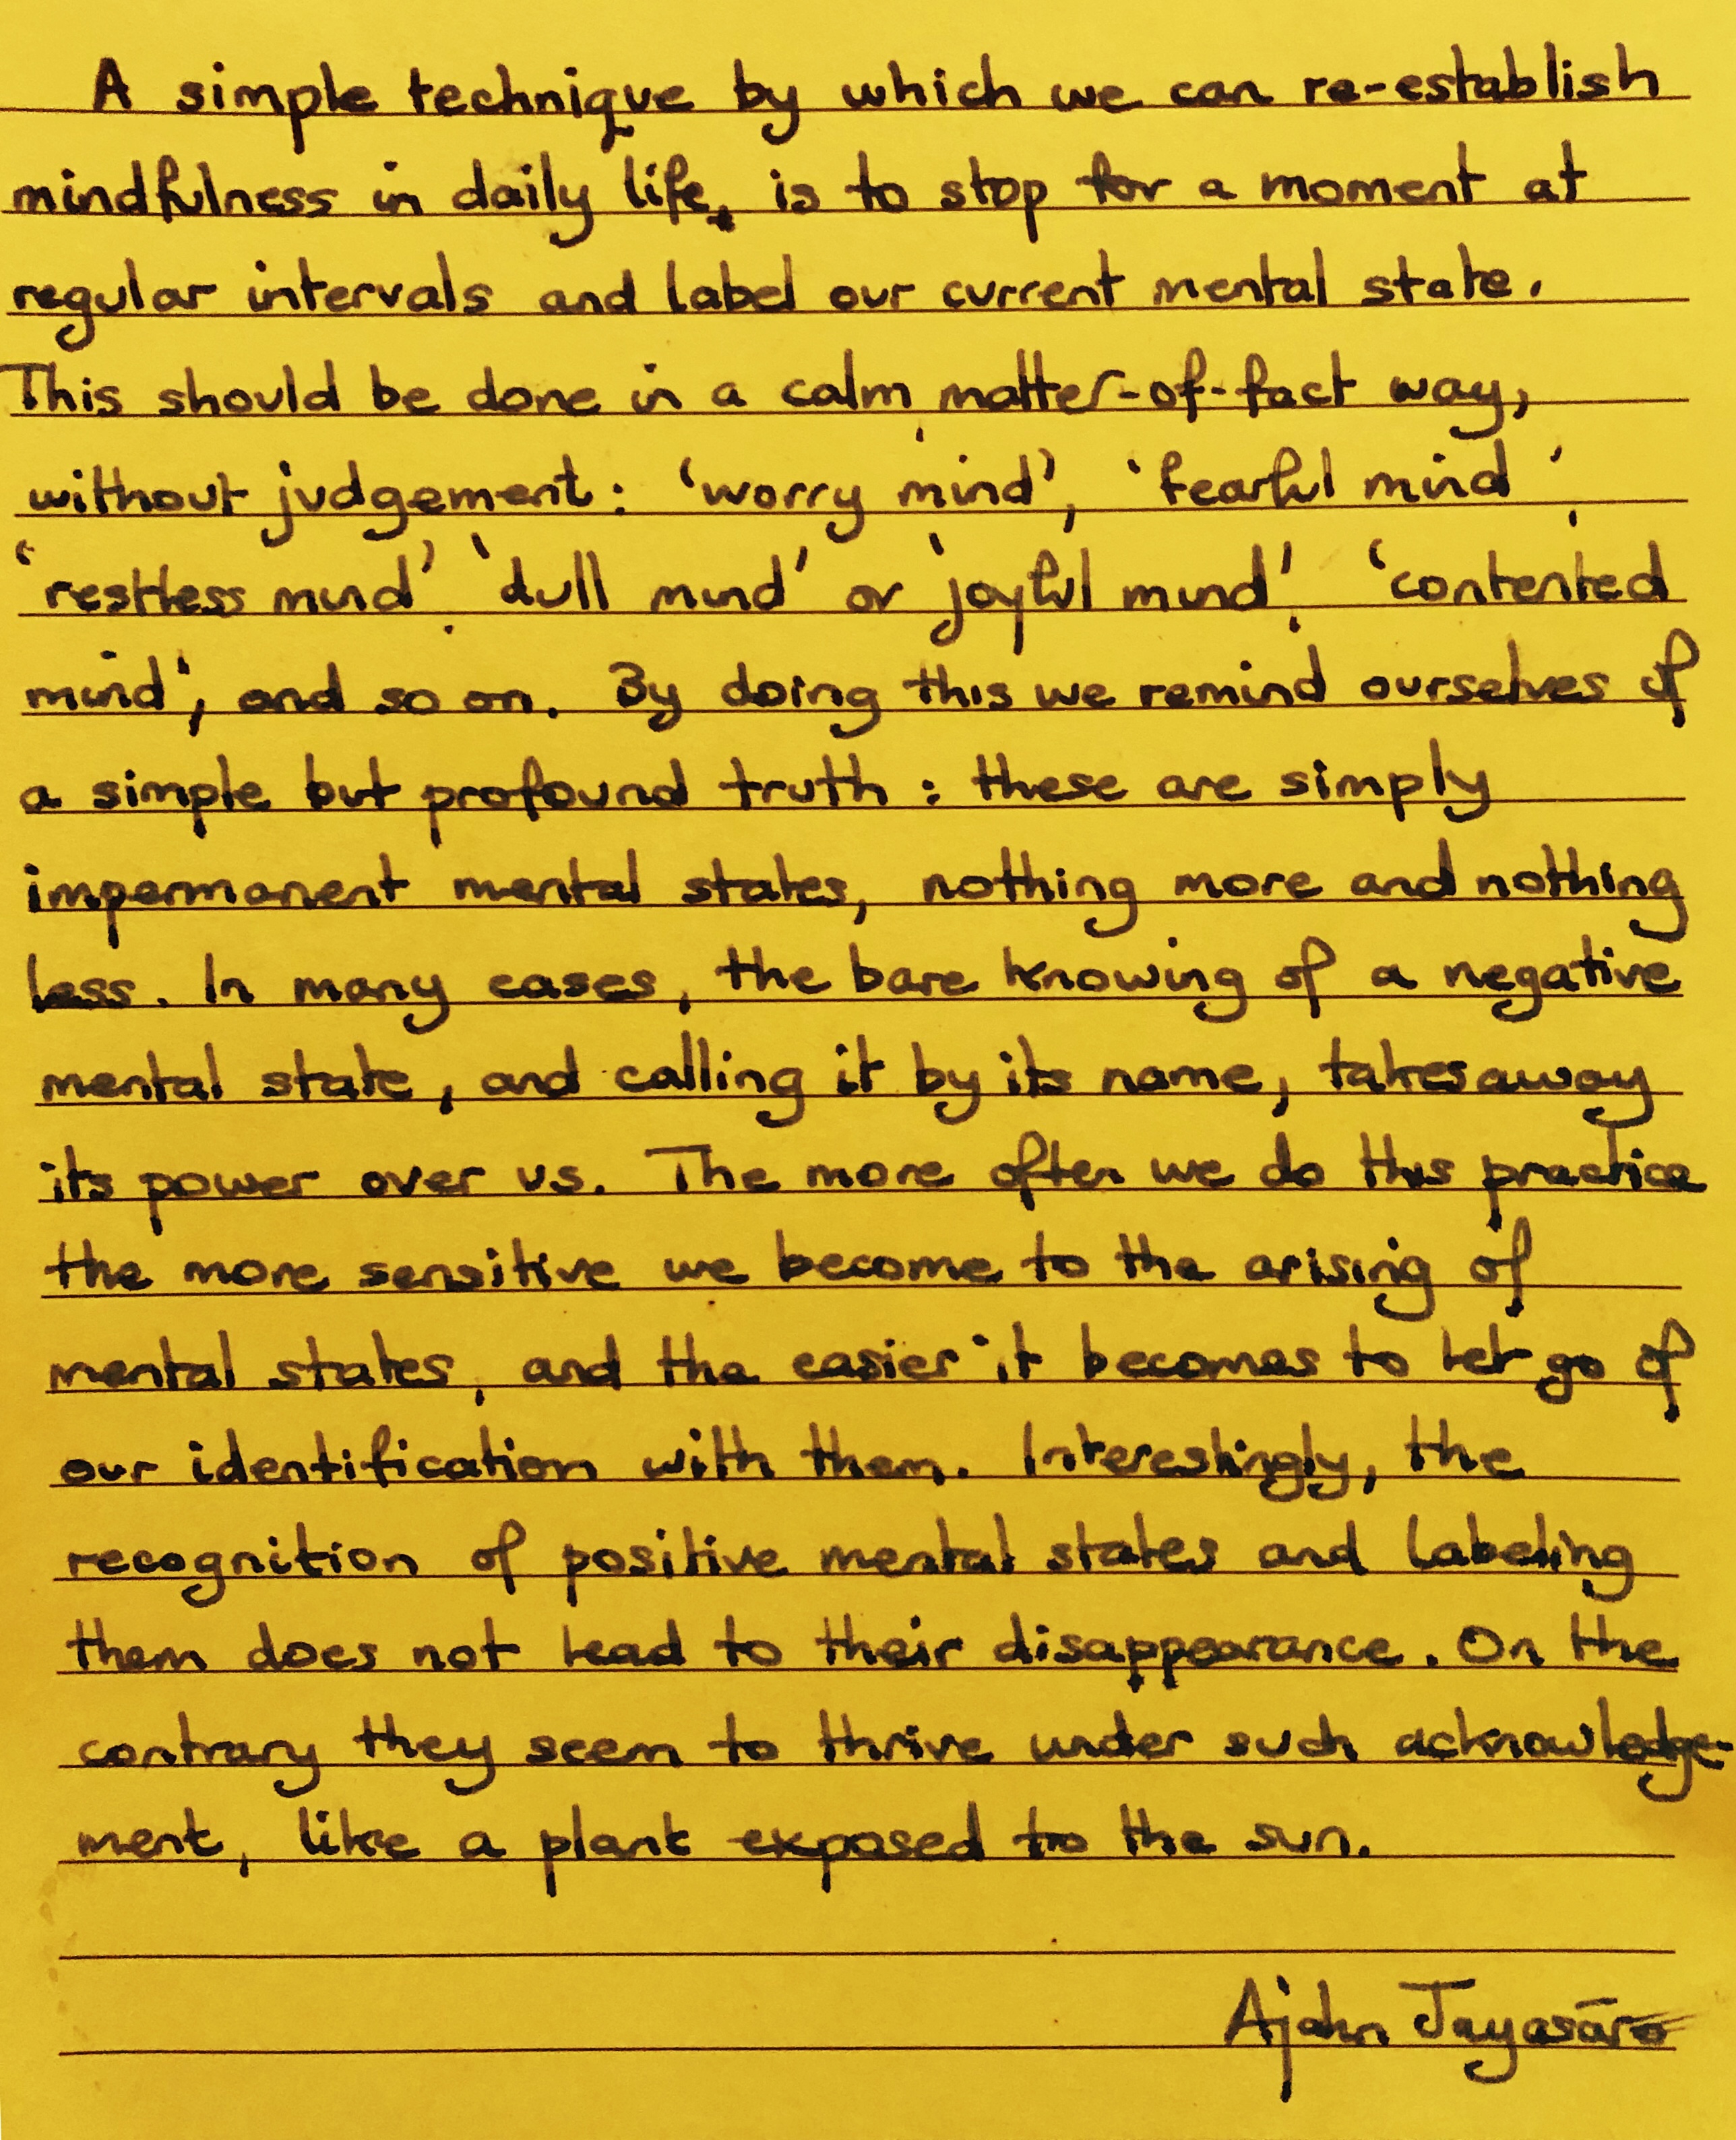 A simple technique by which we can re-establish
mindfulness in daily life, is to stop for a moment at
regular intervals and label our current mental state.
This should be done in a calm, matter-of-fact way,
without judgement: 'worry mind', 'fearful mind',
'restless mind', 'dull mind' or 'joyful mind', 'contented
mind', and so on. By doing this we remind ourselves of
a simple but profound truth: these are simply
impermanent mental states, nothing more and nothing
less. In many cases, the bare knowing of a negative
mental state, and calling it by its name, takes away
its power over us. The more often we do this practice
the more sensitive we become to the arising of
mental states, and the easier it becomes to let go of
our identification with them. Interestingly, the
recognition of positive mental states and labeling
them does not lead to their disappearance. On the
contrary they seem to thrive under such acknowledge-
ment, like a plant exposed to the sun.
Ajahn Jayasāro